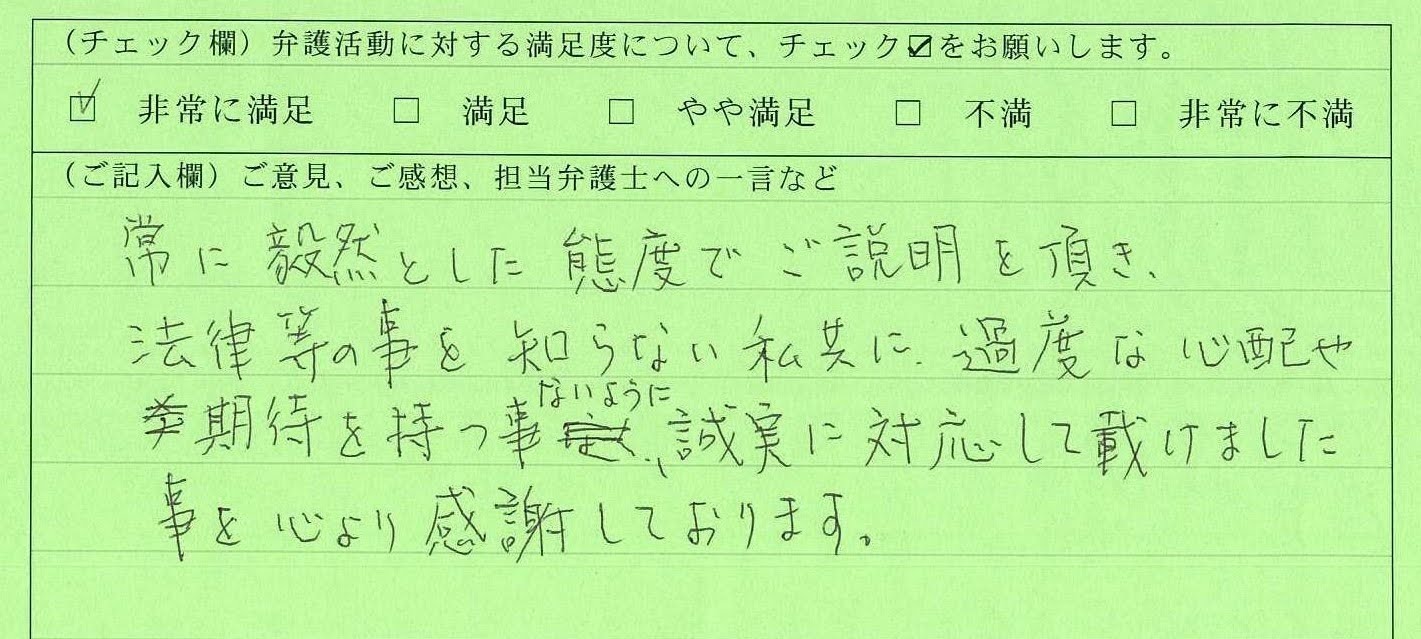 （チェック欄）弁護活動に対する満足度について、チェック☑をお願いします。
☑ 非常に満足 □ 満足 □ やや満足 □ 不満 □ 非常に不満
（ご記入欄）ご意見、ご感想、担当弁護士への一言など
常に毅然とした態度でご説明を頂き、
法律等の事を知らない私共に、過度な心配や
期待を持つ事ないように、誠実に対応して載けました
事を心より感謝しております。